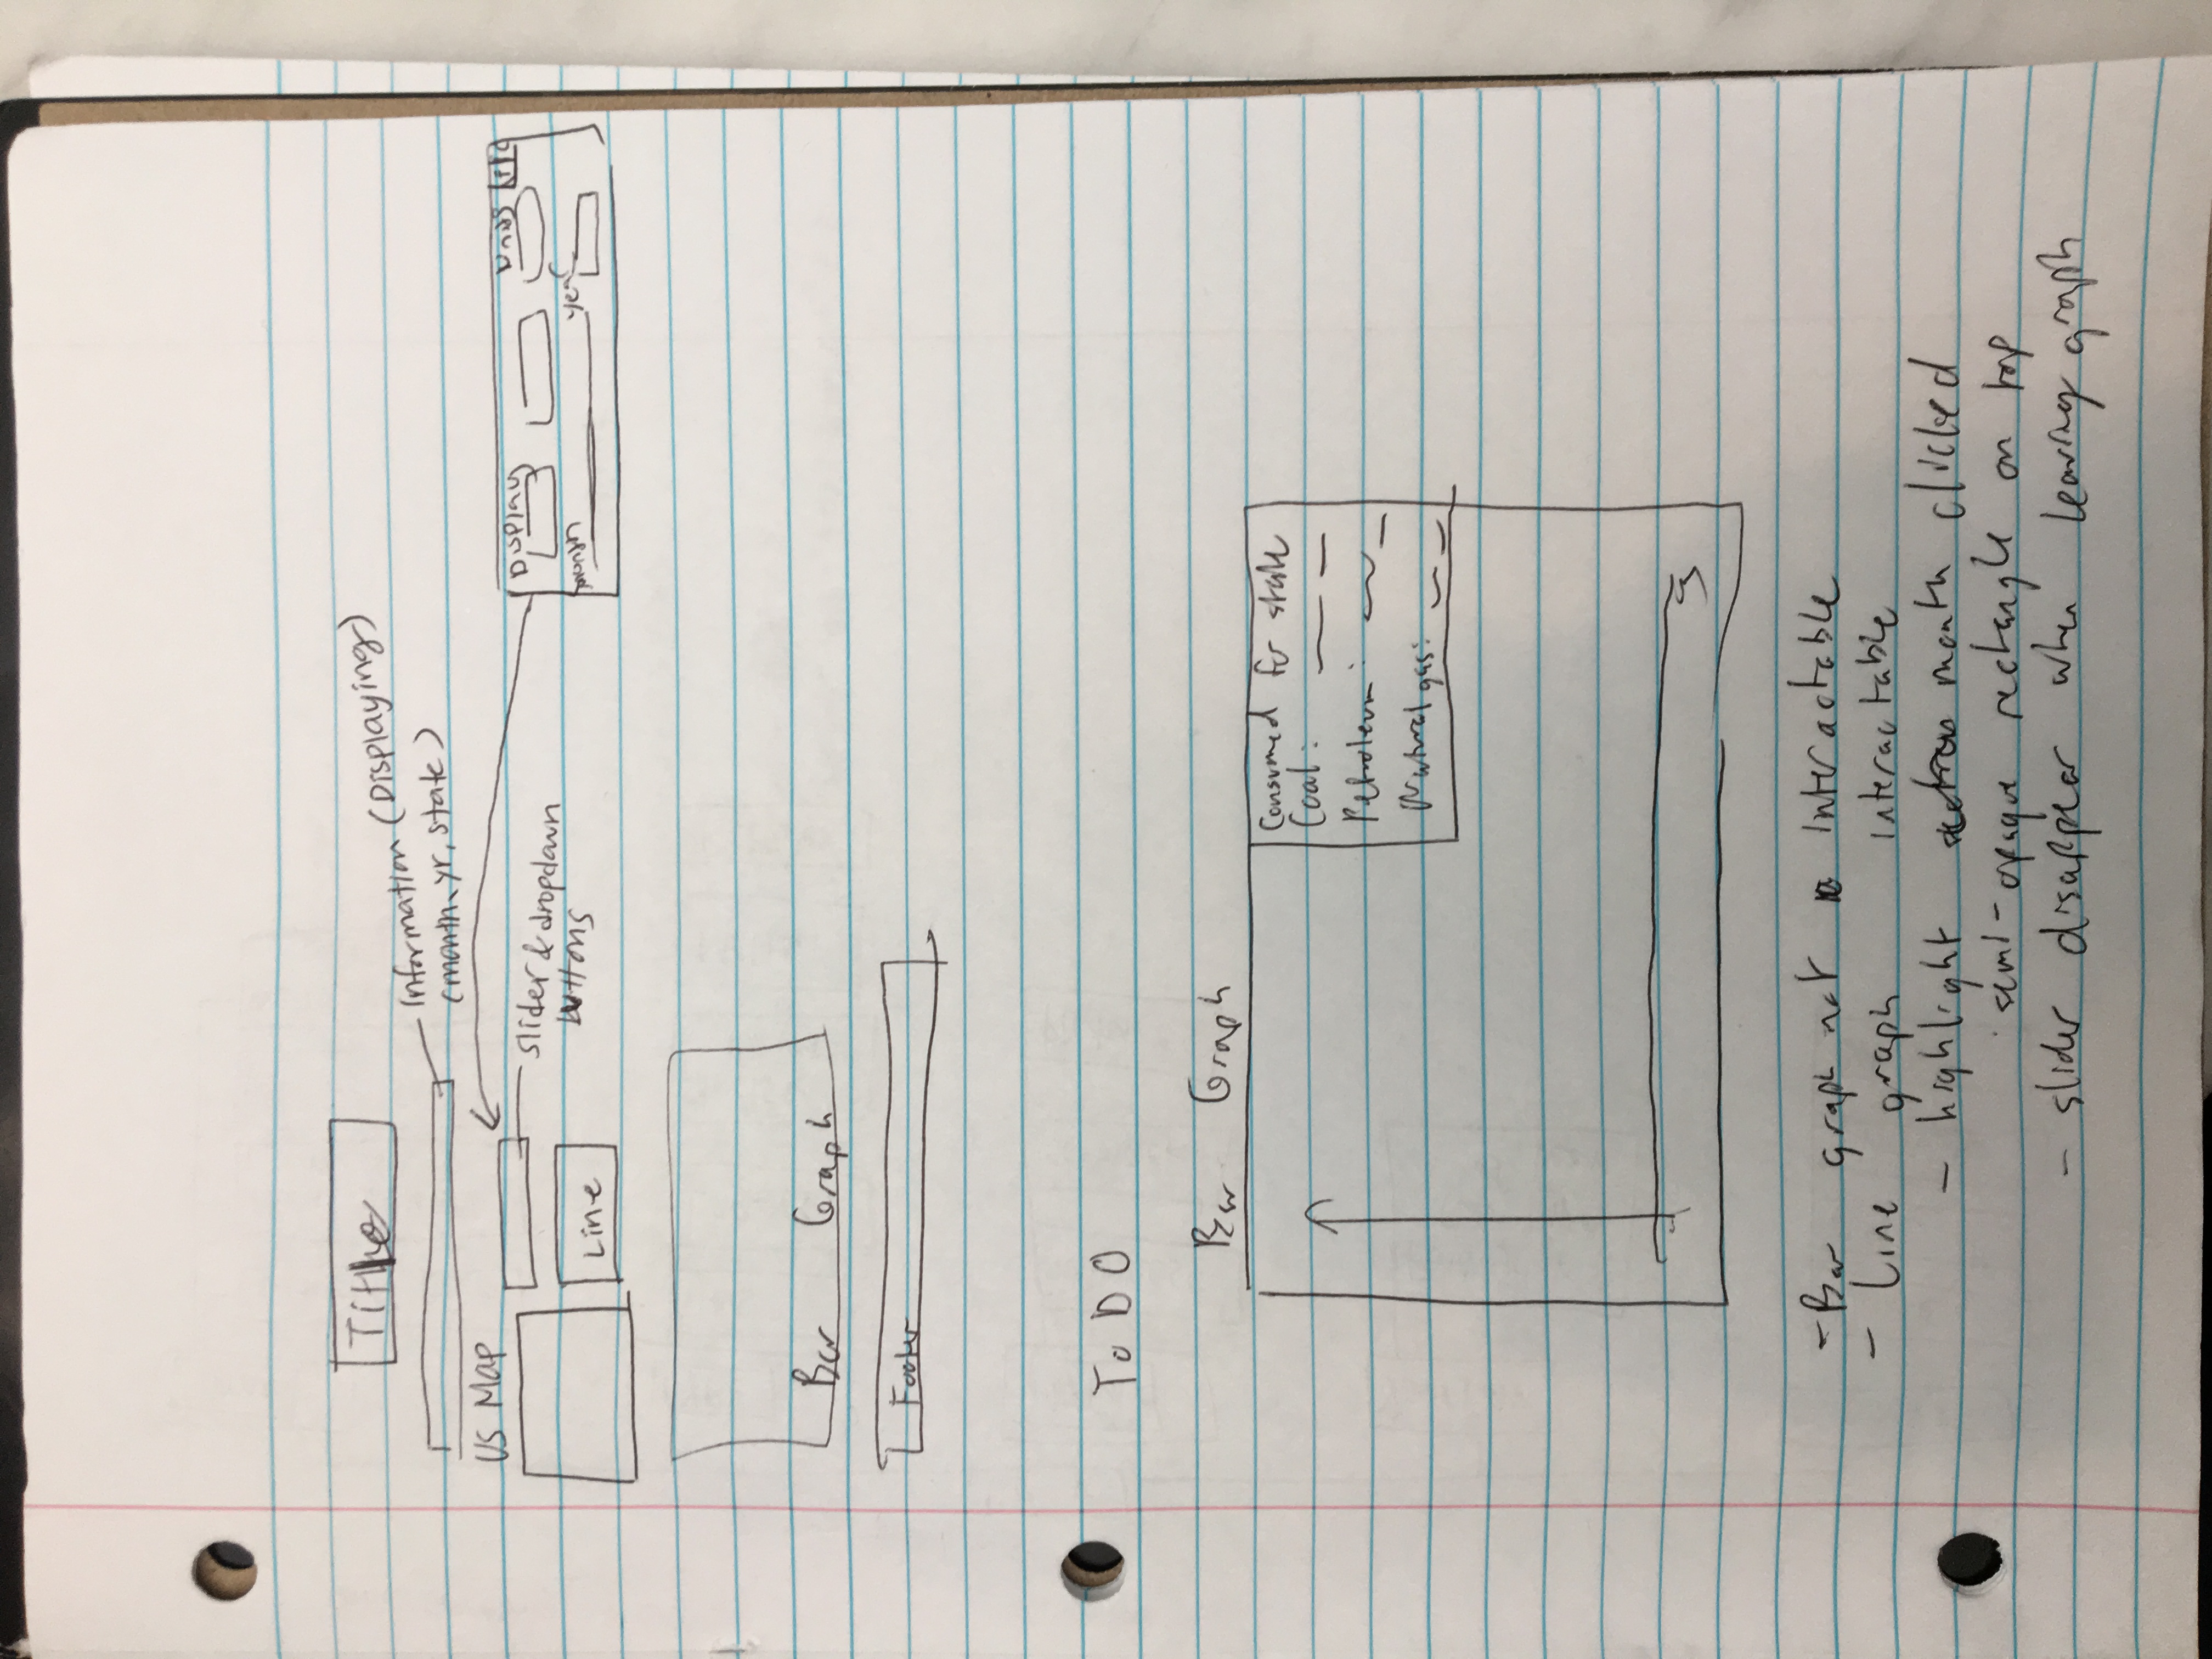 Title
Information (Displaying)
(month, yr, state)
US Map
slider & dropdown
buttons
Line
Display
month
year
Bar Graph
Footer
To DO
Bar Graph
Consumed for state
Coal:
Petroleum:
Natural gas:
- Bar graph not interactable
- Line graph interactable
- highlight month clicked
semi-opaque rectangle on top
- slider disappear when leaving graph